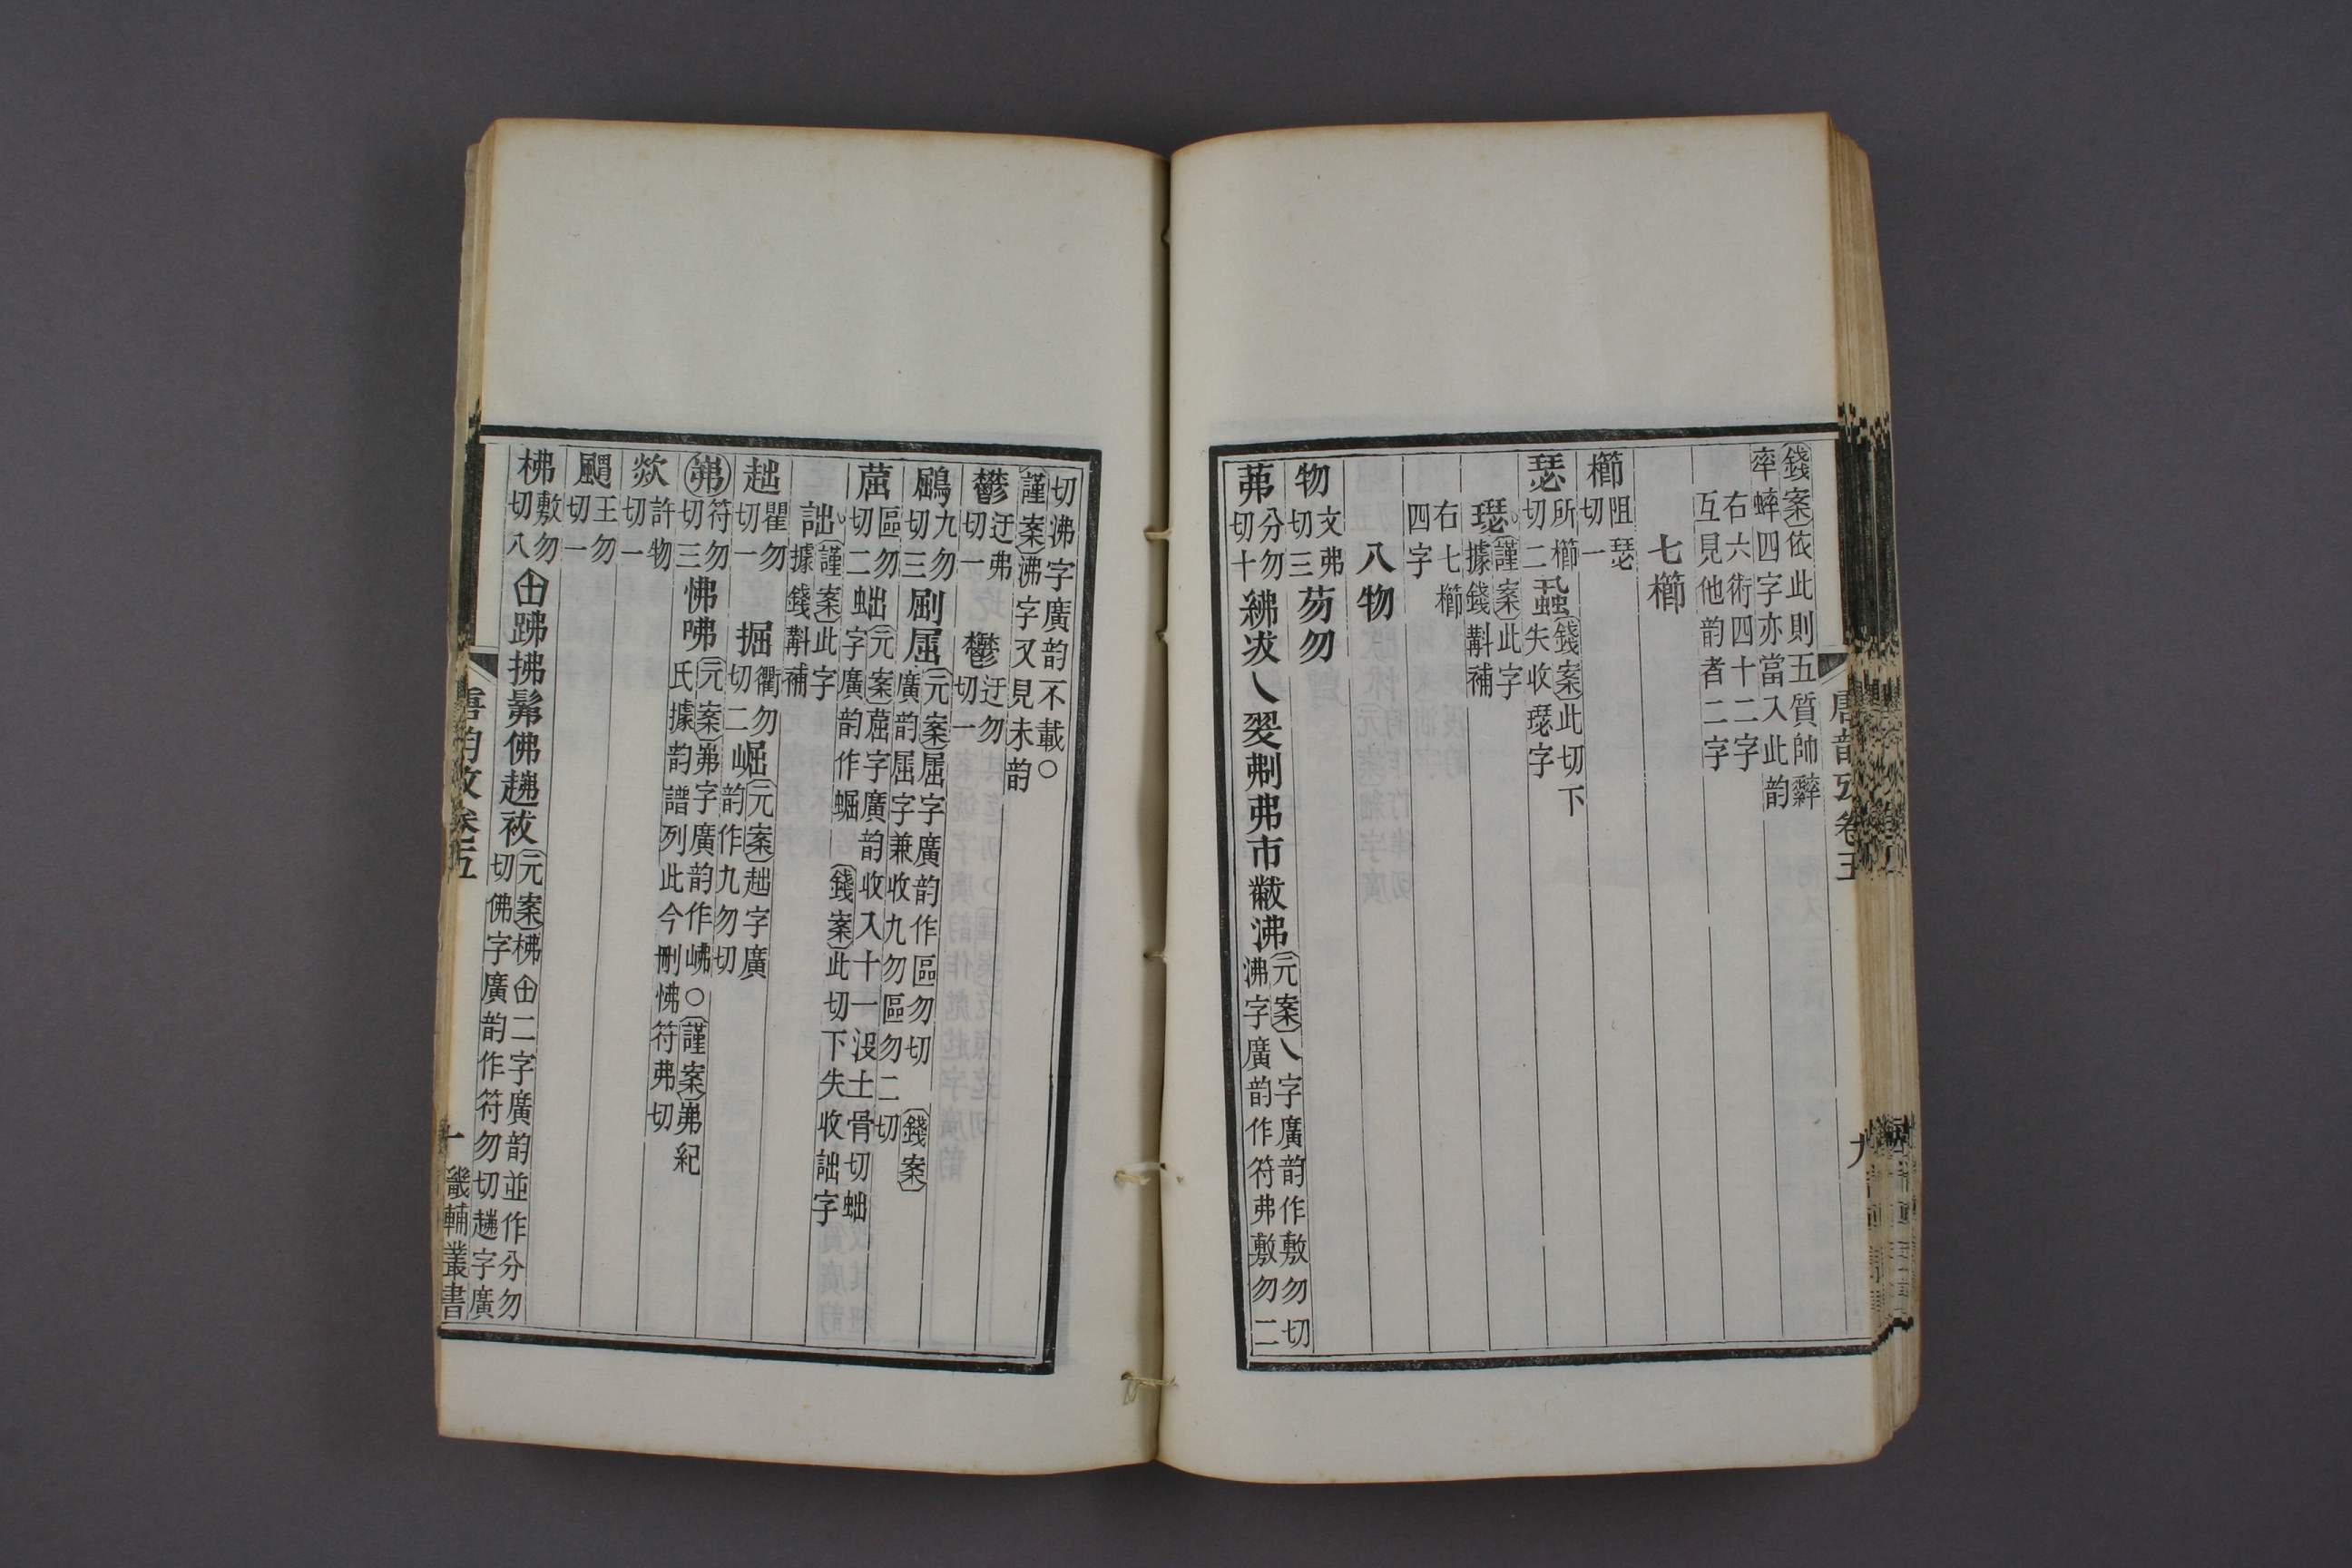 錢案依此則五質帥䢦
率蟀四字亦當入此韵
右六術四十二字
互見他韵者二字
七櫛
櫛阻瑟切一
瑟所櫛切二蝨錢案此切下失收璱字
璱謹案此字據錢斠補
右七櫛四字
八物
物文弗切三芴勿
茀分勿切十紼冹乀翇刜弗巿黻沸元案乀字廣韵作敷勿切沸字廣韵作符弗敷勿二
唐韵攷卷五
九
切沸字廣韵不載○
謹案沸字又見未韵
鬱迂弗切一
鬱迂勿切一
鶌九勿切三㓖屈元案屈字廣韵作區勿切廣韵屈字兼收九勿區勿二切
錢案
䓛區勿切二蚍元案䓛字廣韵收入十一沒土骨切蚍字廣韵作崛
錢案此切下失收詘字
詘謹案此字據錢斠補
趉瞿勿切一
掘衢勿切二崛元案趉字廣韵作九勿切
岪符勿切三怫咈元案岪字廣韵作岪○謹案岪紀氏據韵譜列此今刪怫符弗切
欻許物切一
䬍王勿切一
柫敷勿切八甶跰拂髴佛䞞祓元案柫甶二字廣韵並作分勿切佛字廣韵作符勿切䞞字廣
唐韵攷卷五
十
畿輔叢書